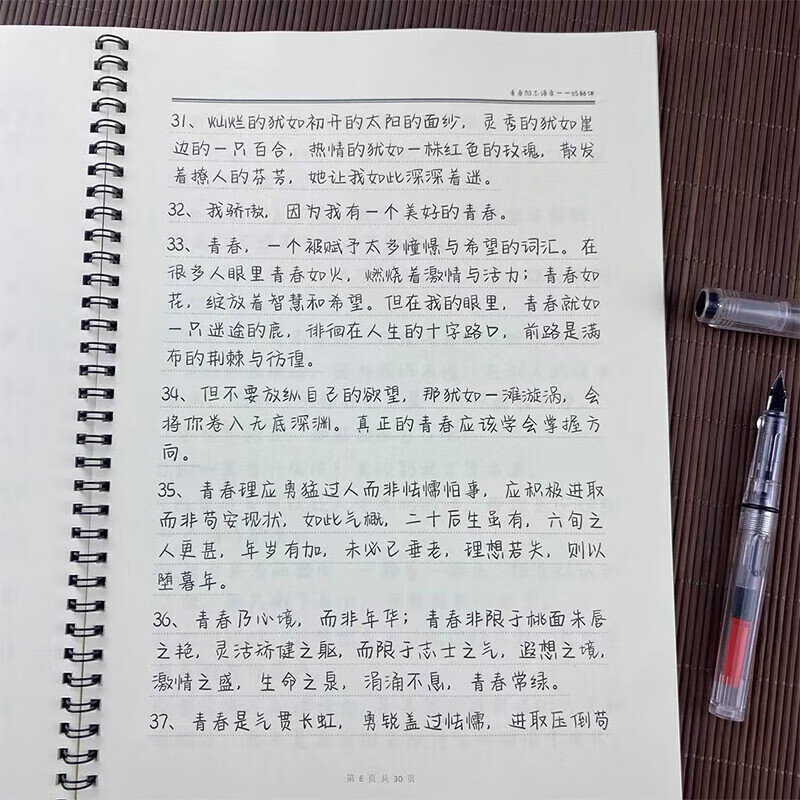 31、灿烂的犹如初开的太阳的面纱，灵秀的犹如崖
边的一只百合，热情的犹如一株红色的玫瑰，散发
着撩人的芬芳，她让我如此深深着迷。
32、我骄傲，因为我有一个美好的青春。
33、青春，一个被赋予太多憧憬与希望的词汇。在
很多人眼里青春如火，燃烧着激情与活力；青春如
花，绽放着智慧和希望。但在我的眼里，青春就如
一只迷途的鹿，徘徊在人生的十字路口，前路是满
布的荆棘与彷徨。
34、但不要放纵自己的欲望，那犹如一滩漩涡，会
将你卷入无底深渊。真正的青春应该学会掌握方
向。
35、青春理应勇猛过人而非怯懦怕事，应积极进取
而非苟安现状，如此气概，二十后生虽有，六旬之
人更甚，年岁有加，未必已垂老，理想若失，则以
堕暮年。
36、青春乃心境，而非年华；青春非限于桃面朱唇
之艳，灵活矫健之躯，而限于志士之气，遐想之境，
激情之盛，生命之泉，涓涌不息，青春常绿。
37、青春是气贯长虹，勇锐盖过怯懦，进取压倒苟
第 6 页 共 30 页